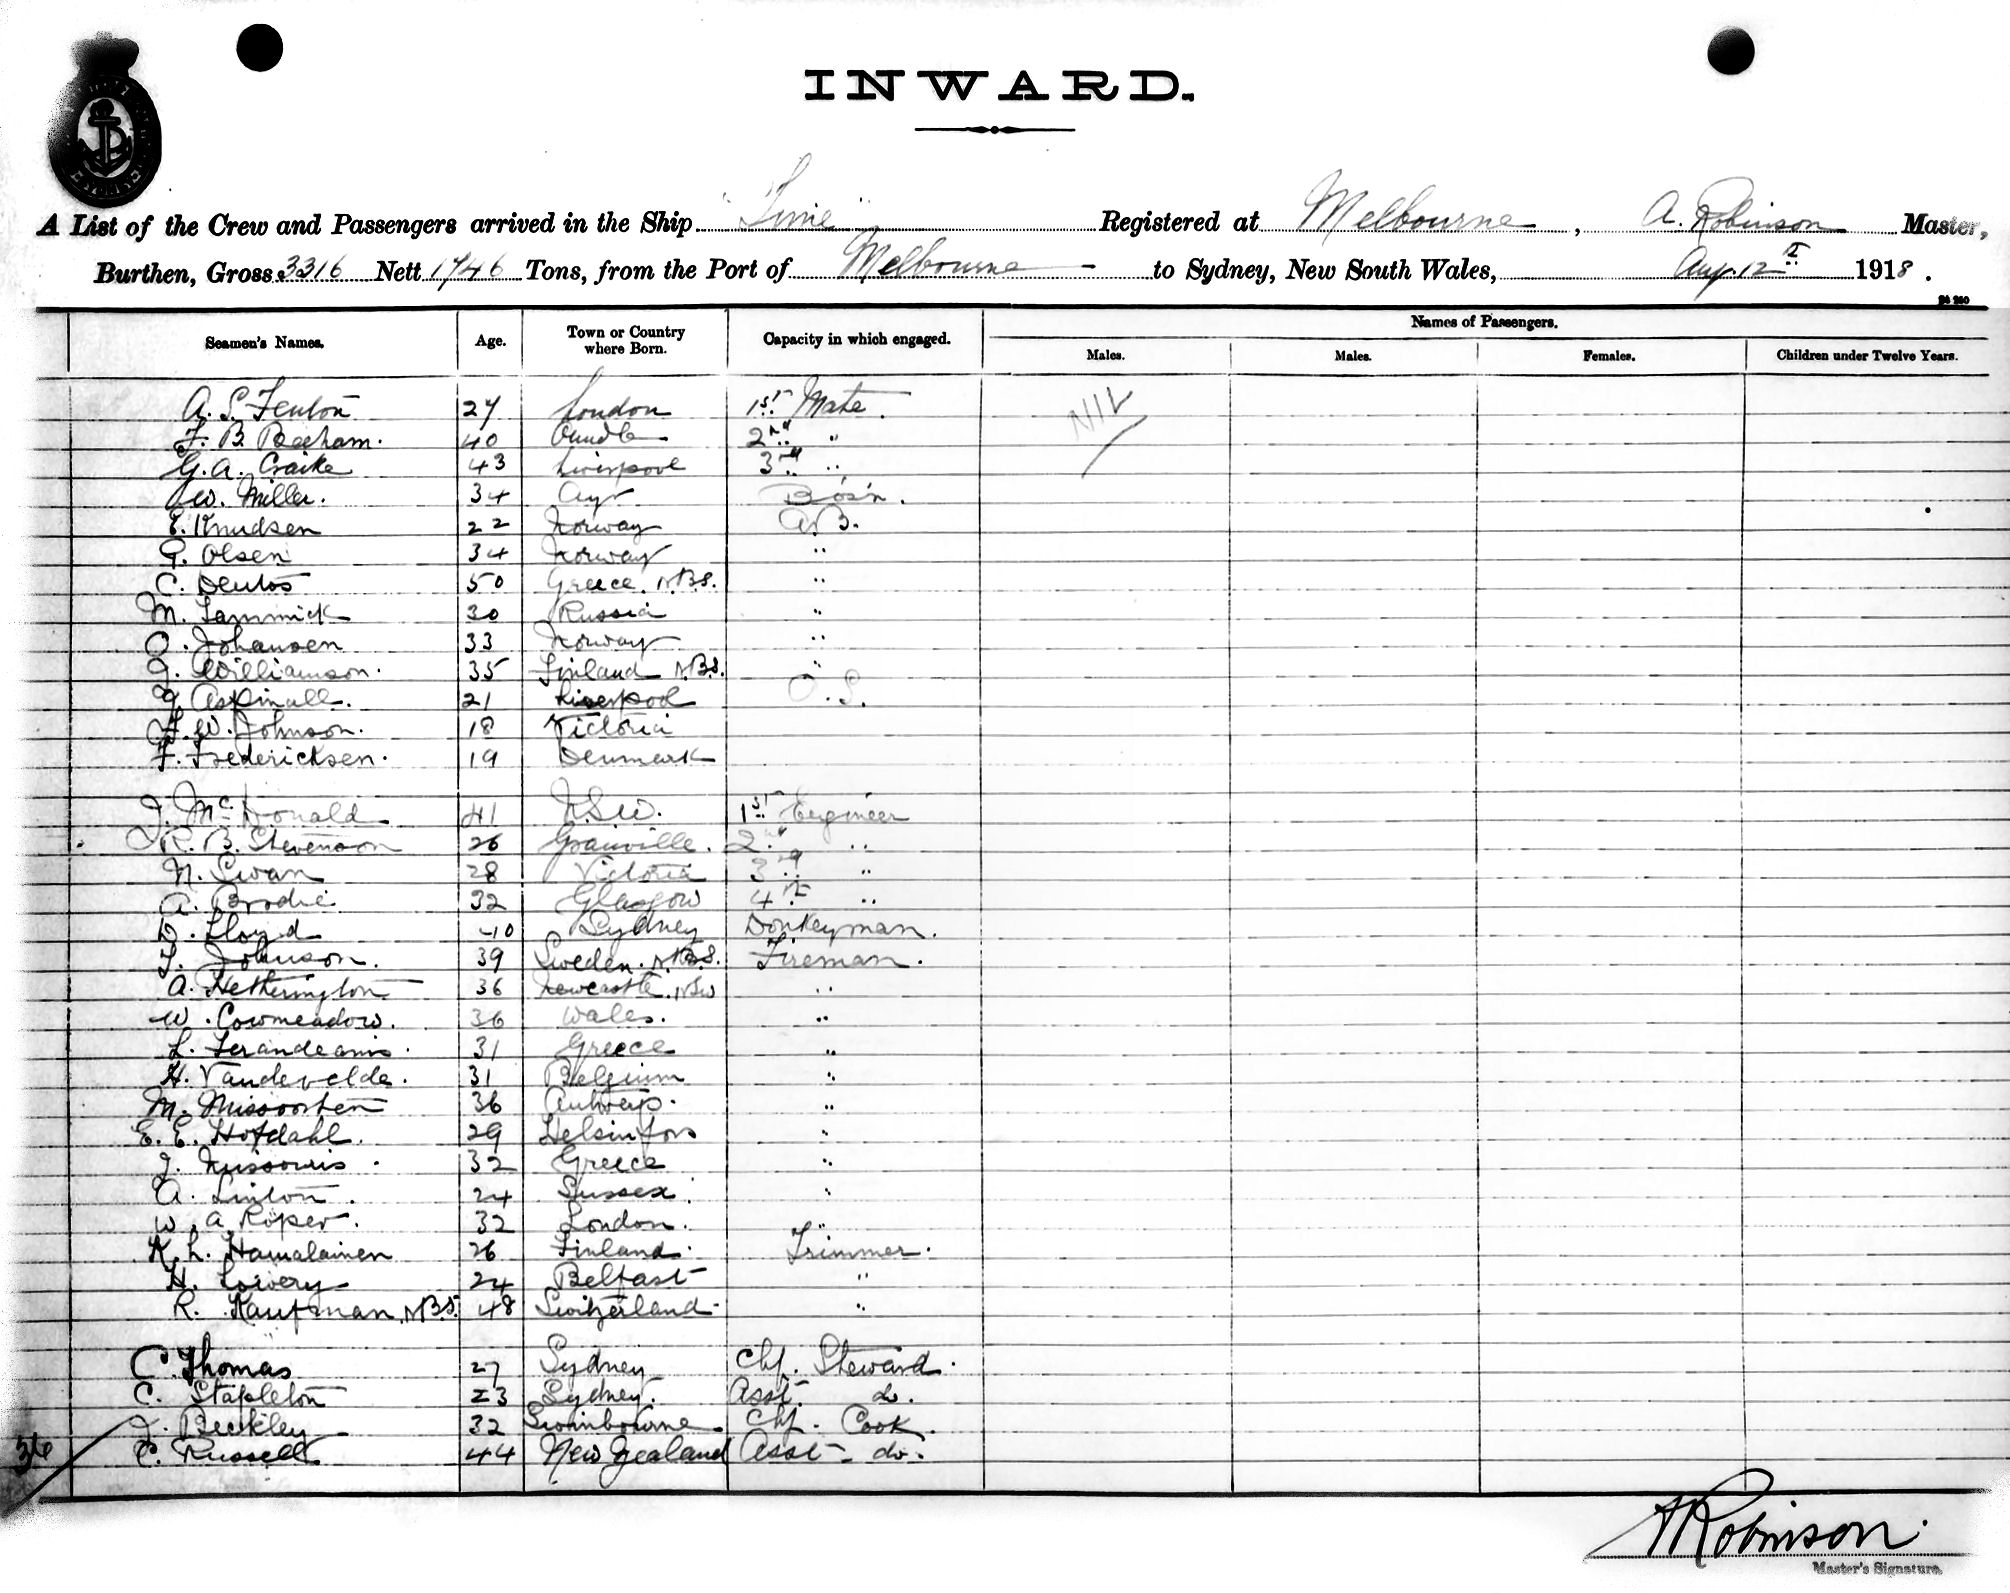 INWARD.
A List of the Crew and Passengers arrived in the Ship "Time" Registered at Melbourne, A. Robinson Master,
Burthen, Gross 3316 Nett 1746 Tons, from the Port of Melbourne - to Sydney, New South Wales, Aug. 12th 1918.
Seamen's Names. Age. Town or Country where Born. Capacity in which engaged. Names of Passengers.
Males. Males. Females. Children under Twelve Years.
A. S. Fenton 27 London 1st Mate. NIL
F. B. Beeham. 40 2nd "
G. A. Craike 43 Liverpool 3rd "
W. Miller. 34 Ayr Bos'n.
E. Knudsen 22 Norway A.B.
G. Olsen 34 Norway "
C. Dentos 50 Greece. N.B.S. "
M. Lammick 30 Russia "
O. Johansen 33 Norway "
J. Williamson. 35 Finland N.B.S. "
J. Aspinall. 21 Liverpool O.S.
W. Johnson. 18 Victoria
F. Fredericksen. 19 Denmark
J. McDonald 41 N.S.W. 1st Engineer
R. B. Stevenson 26 Granville. 2nd "
N. Swan 28 Victoria 3rd "
A. Brodie 32 Glasgow 4th "
D. Lloyd 40 Sydney Donkeyman.
T. Johnson. 39 Sweden. N.B.S. Fireman.
A. Hetherington 36 Newcastle. NSW "
W. Cowmeadow. 36 Wales. "
L. 31 Greece "
H. Vandevelde. 31 Belgium "
M. Missoorten 36 Antwerp. "
E. E. Hofdahl. 29 Helsinfors "
J. 32 Greece "
A. Linton. 24 Sussex. "
W. A Roper. 32 London. "
K. L. Hamalainen 26 Finland. Trimmer.
H. Lowery 24 Belfast "
R. Kaufman N.B.S. 48 Switzerland "
C. Thomas 27 Sydney Chf. Steward.
C. Stapleton 23 Sydney. Asst. do.
J. Beckley 32 Swinbourne Chf. Cook.
36 C. Russell 44 New Zealand Asst - do.
A Robinson.
Master's Signature.